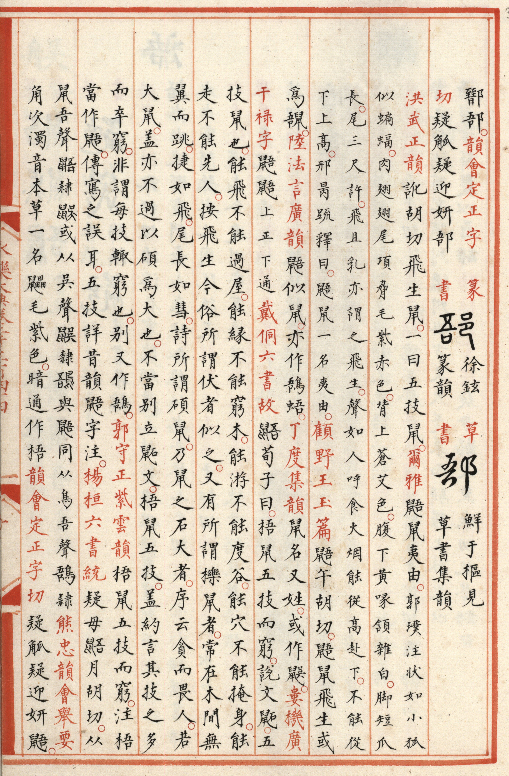 部。韻會定正字 篆 郚 徐鉉 草 郚 鮮于樞見
切疑觚疑迎妍郚 書 篆韻 書 草書集韻
洪武正韻訛胡切飛生鼠。一曰五技鼠。爾雅鼯鼠夷由。郭璞注狀如小狐
似蝙蝠。肉翅翅尾項脅毛紫赤色。背上蒼艾色。腹下黃喙頷雜白脚短爪
長。尾三尺許。飛且乳亦謂之飛生。聲如人呼食火烟能從高赴下。不能從
下上高。邢昺疏釋曰。鼯鼠一名夷由。顧野王玉篇鼯午胡切。鼯鼠飛生或
為。陸法言廣韻鼯似鼠。亦作。丁度集韻鼠名又姓。或作。婁機廣
干祿字鼯鼯上正下通戴侗六書故鼯荀子曰。梧鼠五技而窮。說文鼫。五
技鼠也。能飛不能過屋。能緣不能窮木。能游不能度谷。能穴不能掩身。能
走不能先人。按飛生今俗所謂伏者似之。又有所謂鼠者。常在木間無
翼而跳。捷如飛。尾長如彗。詩所謂碩鼠。乃鼠之石大者。序云貪而畏人。若
大鼠。蓋亦不過以碩為大也。不當別立鼫文。梧鼠五技。蓋約言其技之多
而卒窮。非謂每技輒窮也。別又作。郭守正紫雲韻梧鼠五技而窮。注梧
當作鼯。傳寫之誤耳。五技詳昔韻鼫字注。楊桓六書統疑母鼯月胡切。从
鼠吾聲鼯隸或从吳聲隸與鼯同从鳥吾聲隸熊忠韻會舉要
角次濁音本草一名鼺毛紫色。暗通作梧韻會定正字切疑觚疑迎妍鼯。